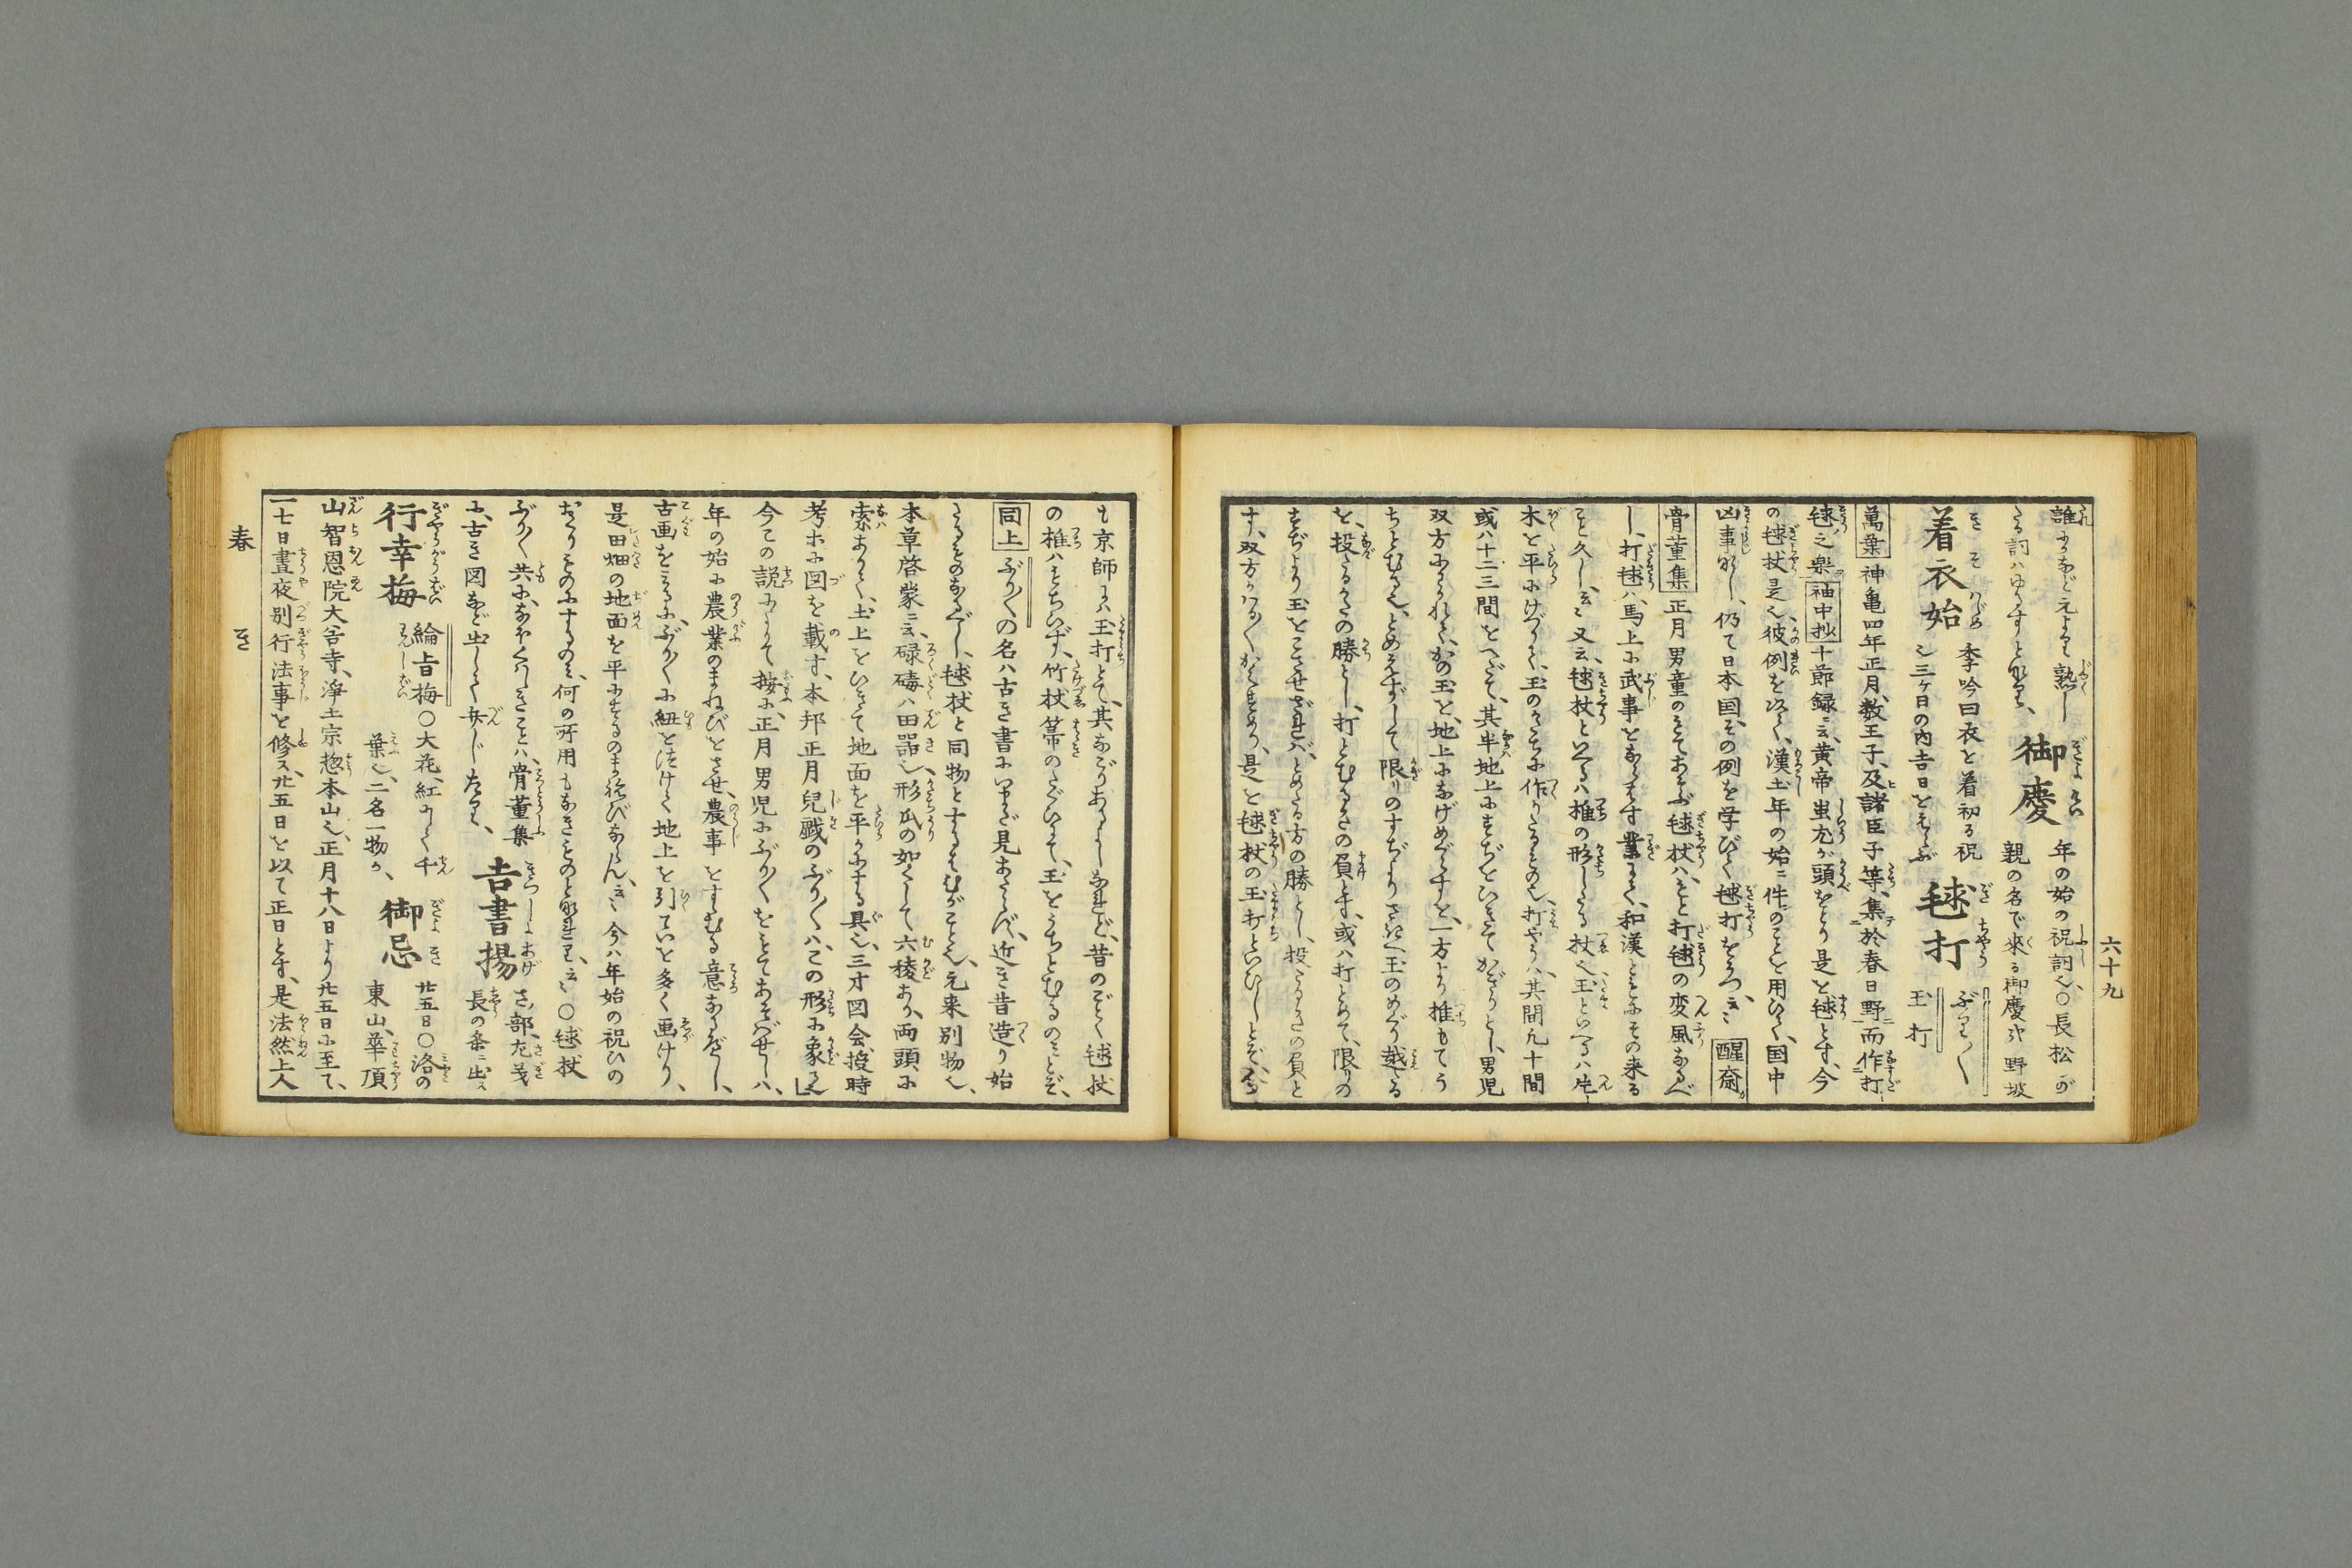 六十九
誰にかなど元より熟し
たる詞はゆるすと知るべし、
御慶
年の始の祝詞也、○長松が
親の名で來る御慶哉 野坡
着衣始
季吟曰衣を着初る祝
也三ヶ日の内吉日をえらぶ
毬打
ぶり〱
玉打
萬葉 神亀四年正月、数王子、及諸臣子等、集於春日野而作打
毬之楽 袖中抄 十節録ニ云、黄帝蚩尤が頭をとり是を毬とす、今
の毬杖是也、彼例を以て、漢土年の始ニ件のことを用ひて、国中
凶事なし、仍て日本国、その例を学びて毬打をうつ、云々 醒斎
骨董集 正月男童のもてあそぶ毬杖ハ、もと打毬の変風なるべ
し、打毬ハ馬上に武事をならはす業にて、和漢ともにその来る
こと久し、云々 又云、毬杖といへるハ椎の形したる杖也、玉といへるハ片
木を平にけづりて、玉のかたちに作りたるもの也、打やうハ、其間九十間
或ハ十二三間をへだて、其半地上にすぢをひきてかぎりとし、男児
双方にわかれて、かの玉を、地上になげめぐらすを、一方より椎もてう
ちとむる也、とめえずして限りのすぢよりさきへ玉のめぐり越たる
を、投たるかたの勝とし、打とむるかたの負とす、或ハ打とめて、限りの
すぢより玉をこさせざれバ、とめたる方の勝とし、投たるかたの負と
す、双方かはる〲かくすめり、是を毬杖の玉打といひしとぞ、今
も京師にハ玉打とて、其なごりあるよしなれど、昔のごとく、毬杖
の椎ハもちいず、竹杖箒のたぐひにて、玉をうちとむるのみとぞ、
同上 ぶり〱の名ハ古き書にいまだ見あたらず、近き昔造り始
たるものなるべし、毬杖と同物とするハひがことなり、元来別物也、
本草啓蒙ニ云、碌碡ハ田器也、形瓜の如くして六稜あり、両頭に
索ありて、土上をひきて地面を平かにする具也、三才図会、授時
考ホに図を載す、本邦正月兒戯のぶり〱ハ、この形に象る也
今この説によりて按に、正月男児にぶり〱をもてあそばせしハ、
年の始に農業のまねびをさせ、農事をすすむる意なるべし、
古画をみるに、ぶり〱に紐を付けて地上を引ていを多く画けり、
是田畑の地面を平にするのまねびならん、云々 今ハ年始の祝ひの
かざりものにするのみ、何の所用もなきものと知れり、云々 ○毬杖
ぶり〱共に、なほくはしきことハ、骨董集
に、古き図など出して弁じたり、
吉書揚
さノ部、左義
長の条ニ出ス
行幸梅
綸旨梅 ○大花、紅にて千
葉也、二名一物か、
御忌
廿五日 ○洛の
東山、華頂
山智恩院大谷寺、淨土宗惣本山也、正月十八日より廿五日に至て、
一七日晝夜別行法事を修ス、廿五日を以て正日とす、是法然上人
春
き